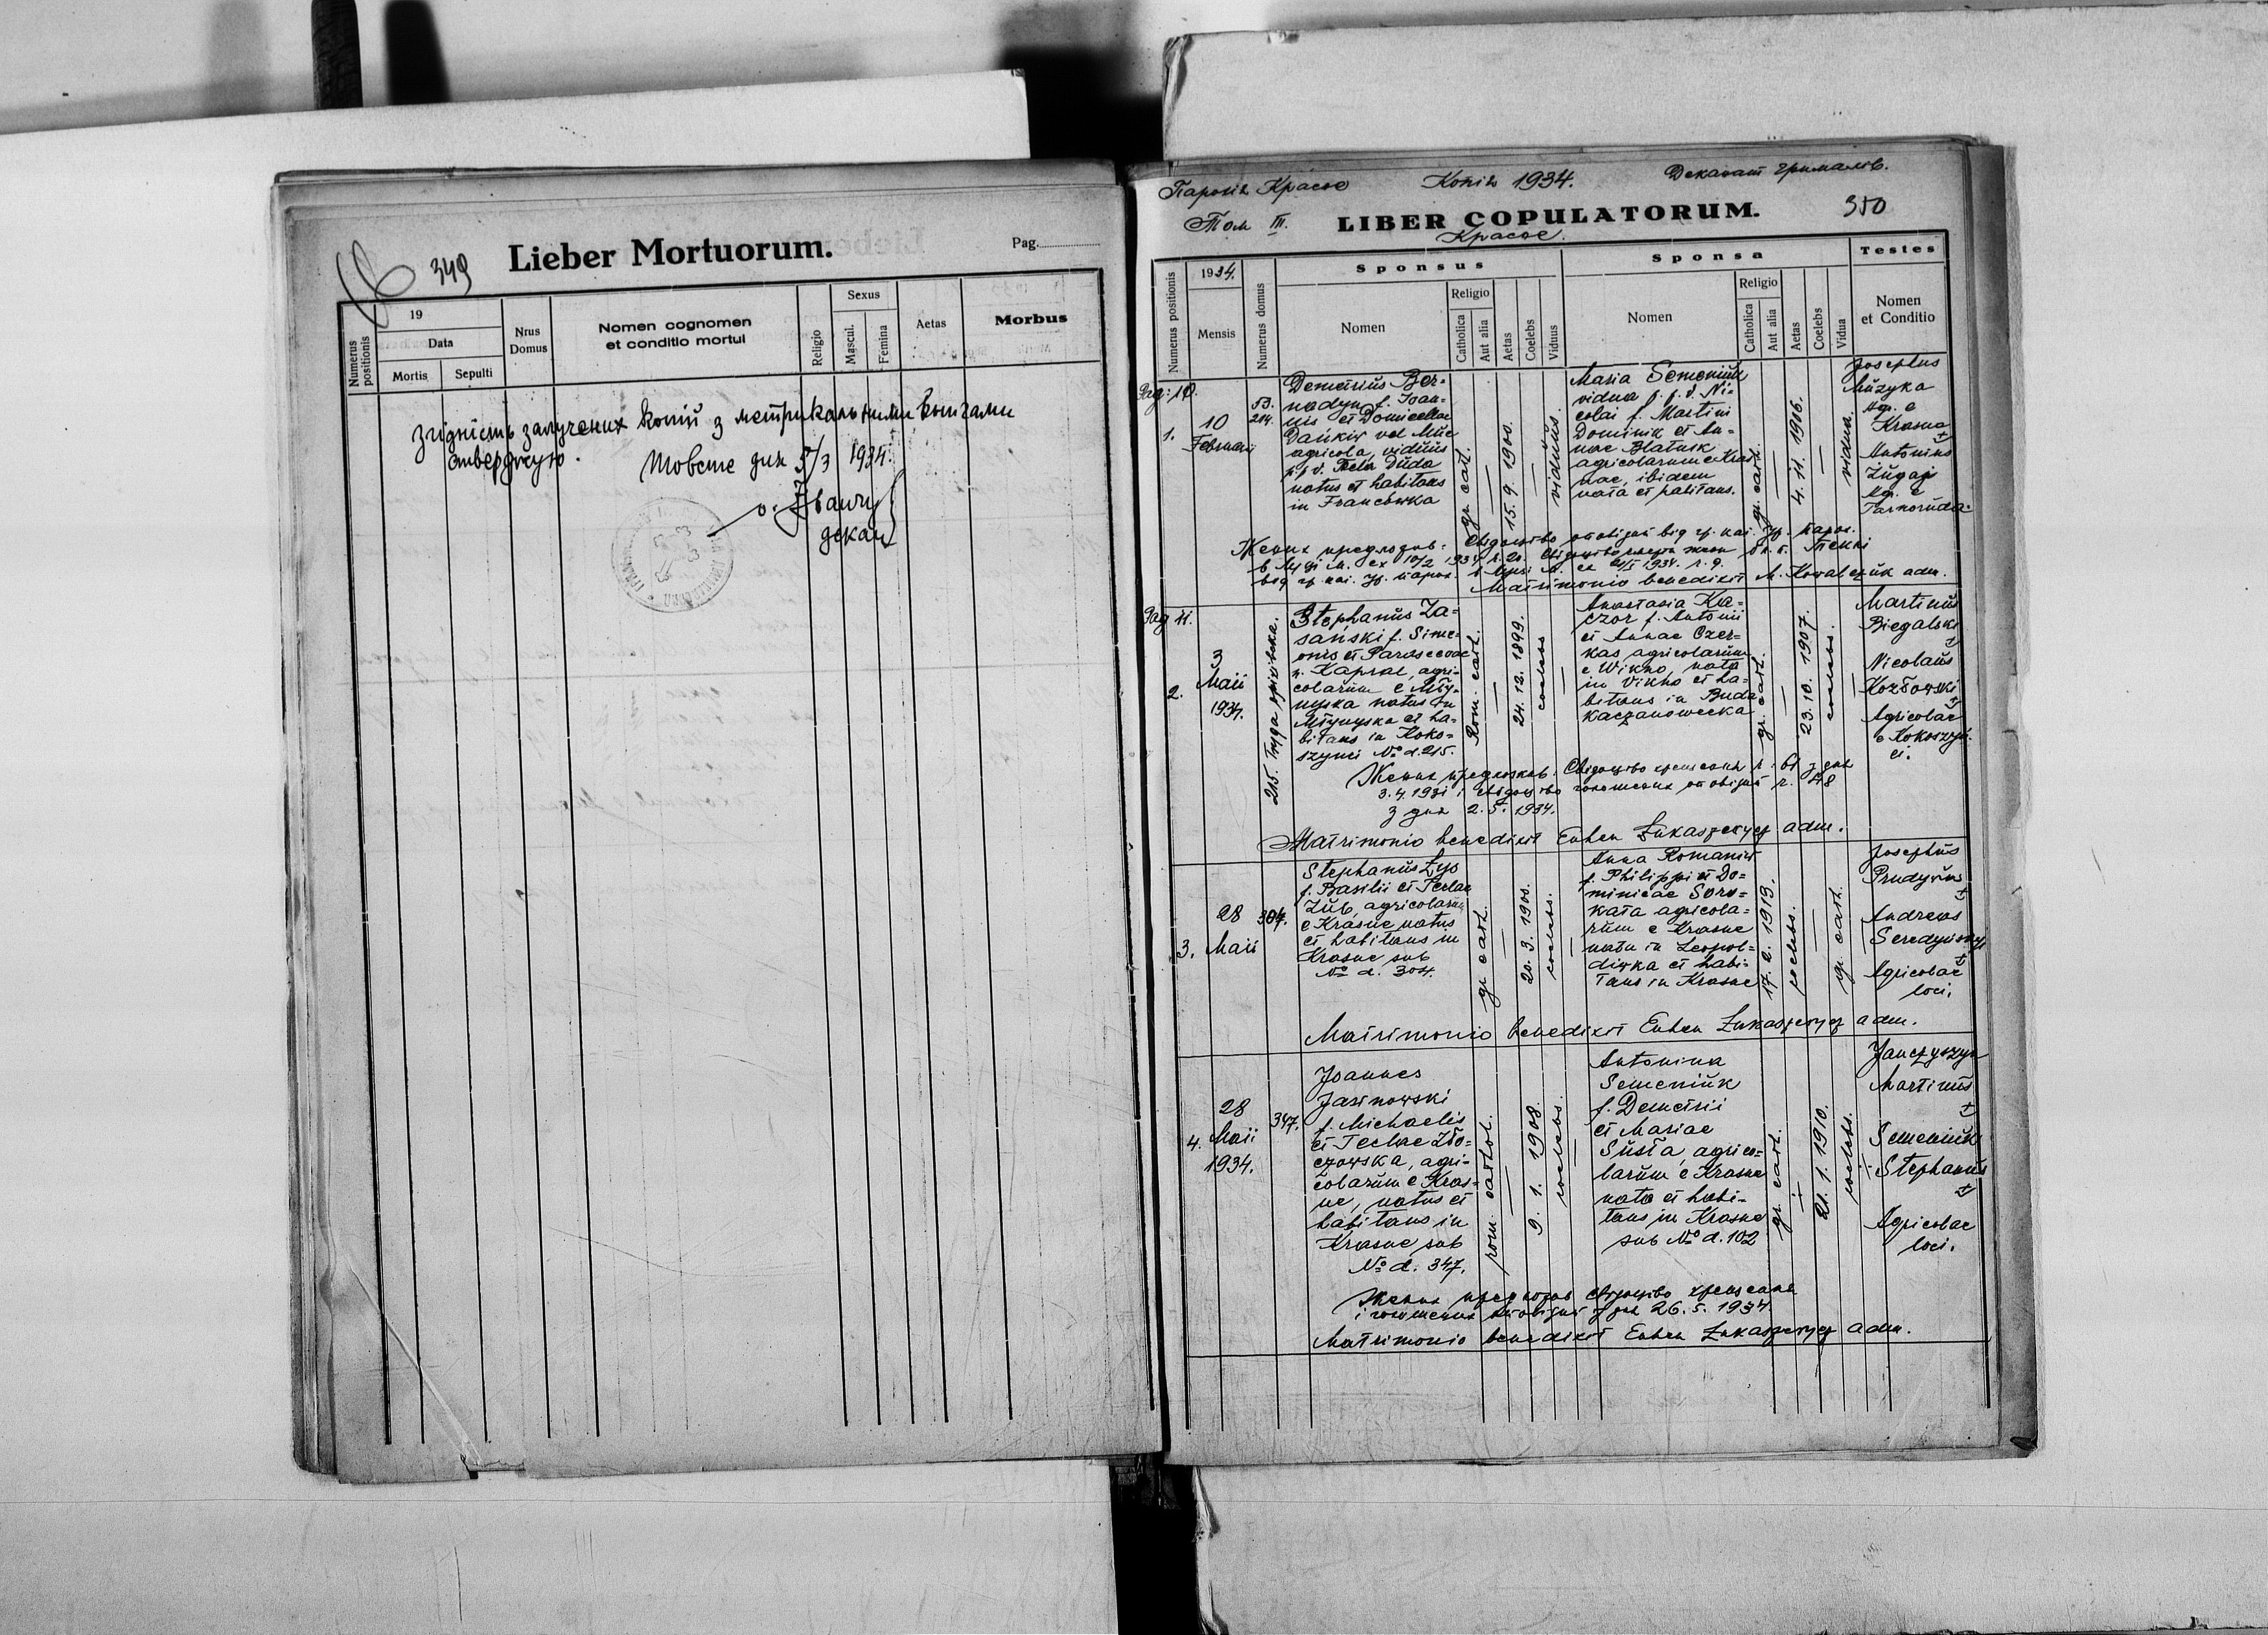 349
Lieber Mortuorum.
Pag.
Numerus positionis
19
Data
Mortis
Sepulti
Nrus Domus
Nomen cognomen et conditio mortui
Religio
Sexus
Mascul.
Femina
Aetas
Morbus
Згідність залучених копій з метрикальними книгами
стверджую.
Товсте дня 5/3 1934.
о.
декан
Парохія Красне Копія 1934. Деканат Грималів.
Том III. LIBER COPULATORUM. 350
Красне.
Numerus positionis
1934.
Mensis
Numerus domus
Sponsus
Nomen
Religio
Catholica
Aut alia
Aetas
Coelebs
Viduus
Sponsa
Nomen
Religio
Catholica
Aut alia
Aetas
Coelebs
Vidua
Testes
Nomen et Conditio
Pag: 10.
1.
10
Februarii
53.
214.
Demetrius Ber-
nadyn f. Joan-
nis et Domicellae
Dańkiw vel
agricola, viduus
p. f. v. Duda
natus et habitans
in Francówka
gr. cath.
15. 9. 1900.
viduus.
Maria Semeniuk
vidua p. f. v. Ni-
colai f. Martini
Dominik et An-
nae Blatnik
agricolarum e Kras-
nae, ibidem
nata et habitans.
gr. cath.
4. 11. 1906.
vidua.
Josephus
Muzyka
Agr. e
Krasne
+
Antonius
Zugaj
Agr. e
Tarnoruda
Жених предложив: Свідоцтво оповідий від гр. кат. Ур. парох.
Matrimonio benedixit M. Kowalczuk adm.
Pag 11.
2.
3
Maii
1934.
215.
Stephanus Za-
sański f. Sime-
onis et Parascevae
n. Kapral, agri-
colarum e Mły-
nyska natus in
Młynyska et ha-
bitans in Koko-
szyńci No d. 215.
Rom. cath.
24. 12. 1899.
coelebs
Anastasia Ka-
czor f. Antonii
et Annae Czer-
kas agricolarum
e Wikno, nata
in Vikno et ha-
bitans in Buda
kaczanowecka
gr. cath.
23. 10. 1907.
coelebs.
Martinus
Biegalski
+
Nicolaus
Kozłowski
+
Agricolae
e Kokoszyń-
ci.
Жених предложив: Свідоцтво хрещення
3. 4. 1931 і свідоцтво голошених оповідий
з дня 2. 5. 1934.
Matrimonio benedixit Euhen Łukaszewycz adm.
3.
28
Maii
304.
Stephanus Łys
f. Basilii et Teclae
Zub, agricolarum
e Krasne natus
et habitans in
Krasne sub
No d. 304.
gr. cath.
20. 3. 1908.
coelebs.
Anna Romaniw
f. Philippi et Do-
minicae Soro-
kata agricola-
rum e Krasne
nata in Leopol-
diwka et habi-
tans in Krasne
17. 2. 1913.
coelebs.
gr. cath.
Josephus
Prudyvus
+
Andreas
Seredyńskyj
+
Agricolae
loci.
Matrimonio benedixit Euhen Łukaszewycz adm.
4.
28
Maii
1934.
347.
Joannes
Jasinowski
f. Michaelis
et Teclae Zło-
czowska, agri-
colarum e Kras-
ne, natus et
habitans in
Krasne sub
No d. 347.
rom. cathol.
9. 1. 1908.
coelebs.
Antonina
Semeniuk
f. Demetrii
et Mariae
Susta, agrico-
larum e Krasne
nata et habi-
tans in Krasne
sub No d. 102
gr. cath.
21. 1. 1910.
coelebs.
Janczyszyn
Martinus
+
Semeniuk
Stephanus
+
Agricolae
loci.
Жених предложив свідоцтво хрещення
і голошених оповідий з дня 26. 5. 1934.
Matrimonio benedixit Euhen Łukaszewycz adm.